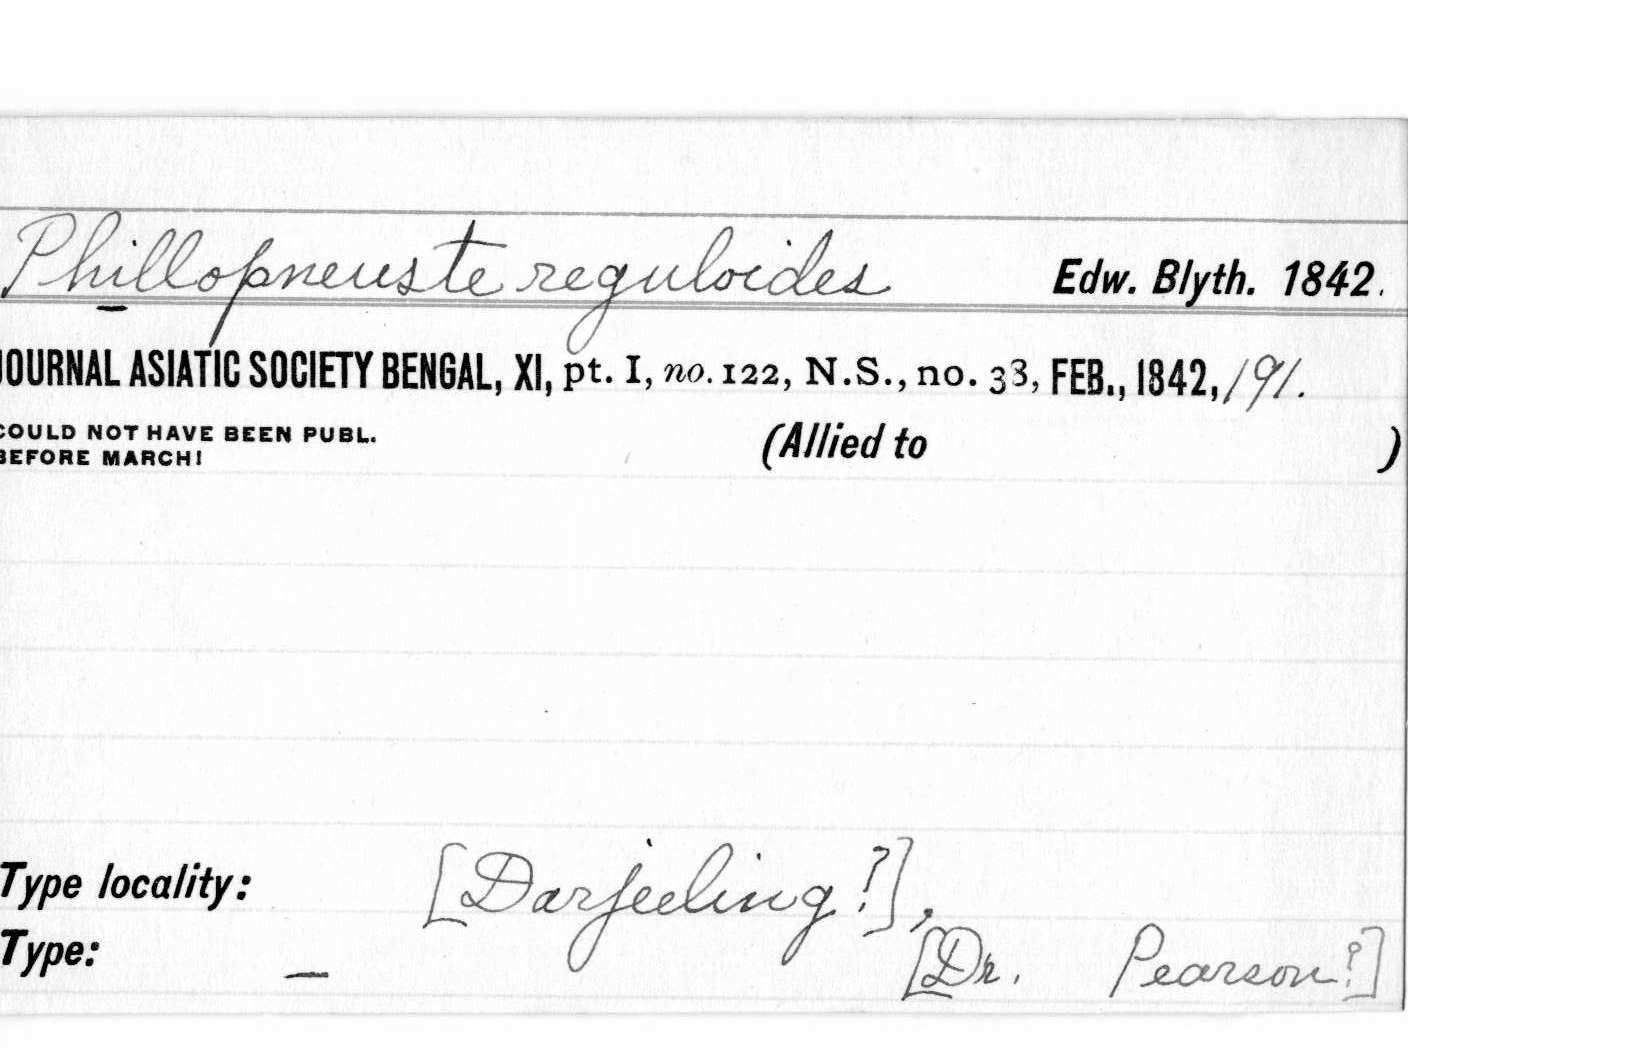 Phillopneuste reguloides Edw. Blyth. 1842.
JOURNAL ASIATIC SOCIETY BENGAL, XI, pt. I, no. 122, N.S., no. 38, FEB., 1842, 191.
COULD NOT HAVE BEEN PUBL. (Allied to )
BEFORE MARCH!
Type locality: [Darjeeling?],
Type: — [Dr. Pearson?]